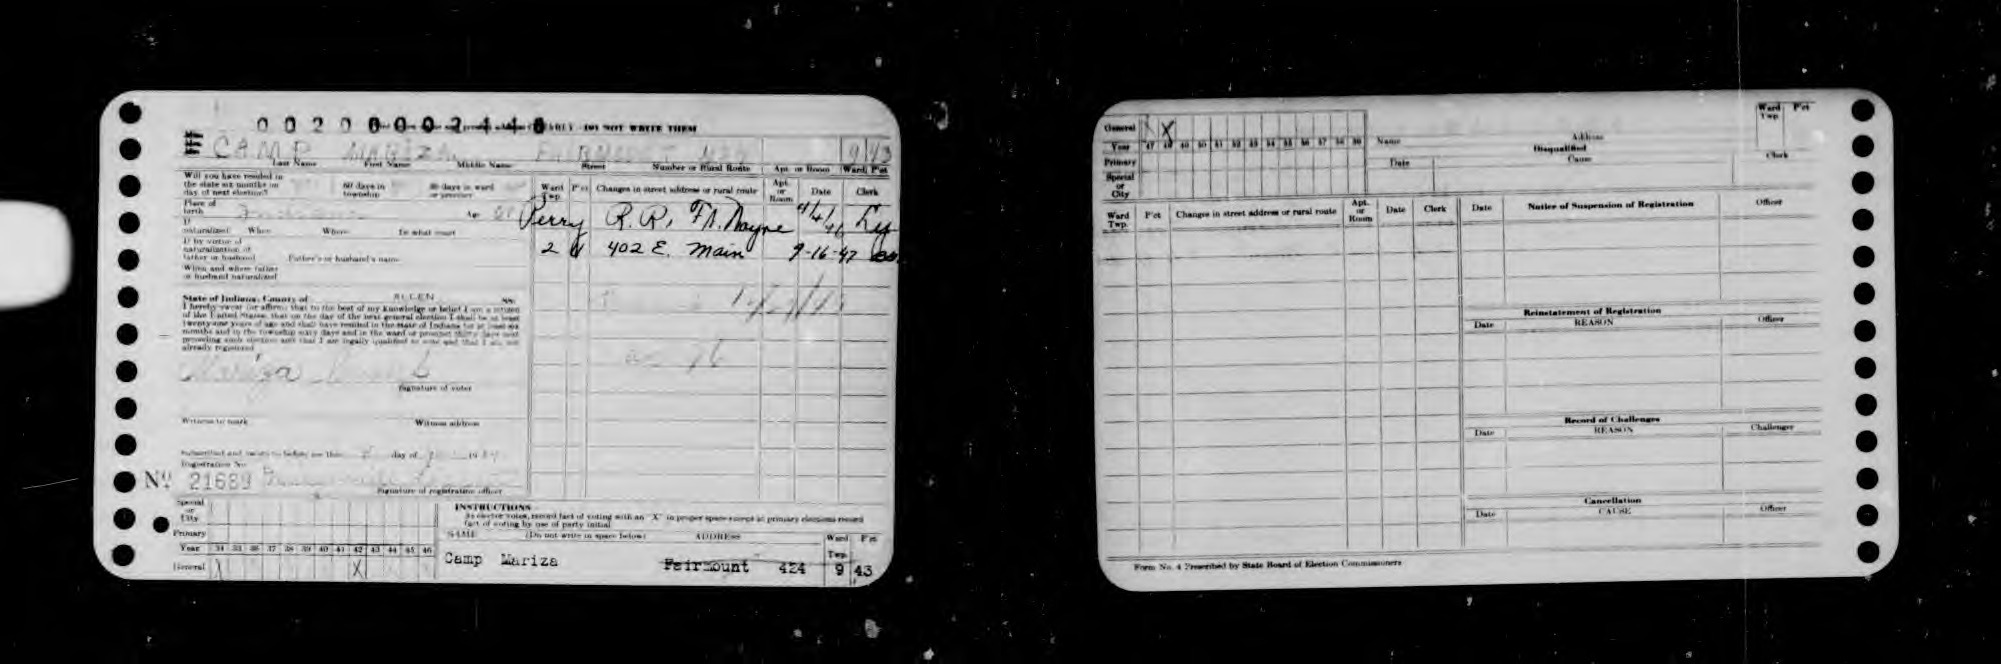 EARLY DO NOT WRITE THEM
CAMP MARIZA FAIRMOUNT 424 9 43
Last Name First Name Middle Name Street Number or Rural Route Apt. or Room Ward P'ct
Will you have resided in
the state six months on 60 days in 30 days in ward
day of next election? township or precinct
Place of
birth Indiana Age
If
naturalized: When Where In what court
If by virtue of
naturalization of
father or husband Father's or husband's name
When and where father
or husband naturalized
State of Indiana, County of ALLEN SS:
I hereby swear (or affirm) that to the best of my knowledge or belief I am a citizen
of the United States, that on the day of the next general election I shall be at least
twenty-one years of age and shall have resided in the state of Indiana for at least six
months and in the township sixty days and in the ward or precinct thirty days next
preceding such election and that I am legally qualified to vote and that I am not
already registered
Mariza Camp
Signature of voter
Witness to mark Witness address
Subscribed and sworn to before me this day of 19
Registration No.
No 21689
Signature of registration officer
Ward Twp. P'ct Changes in street address or rural route Apt. or Room Date Clerk
Perry R. R. Ft. Wayne
2 402 E. Main 9-16-47
Special
or
City
Primary
Year 34 35 36 37 38 39 40 41 42 43 44 45 46
General X
INSTRUCTIONS
As elector votes, record fact of voting with an "X" in proper space except at primary elections record
fact of voting by use of party initial
NAME (Do not write in space below) ADDRESS Ward Twp. P'ct
Camp Mariza Fairmount 424 9 43
General X
Year 47 48 49 50 51 52 53 54 55 56 57 58 59
Primary
Special
or
City
Name Address Ward Twp. P'ct
Disqualified
Date Cause Clerk
Ward Twp. P'ct Changes in street address or rural route Apt. or Room Date Clerk
Date Notice of Suspension of Registration Officer
Reinstatement of Registration
Date REASON Officer
Record of Challenges
Date REASON Challenger
Cancellation
Date CAUSE Officer
Form No. 4 Prescribed by State Board of Election Commissioners